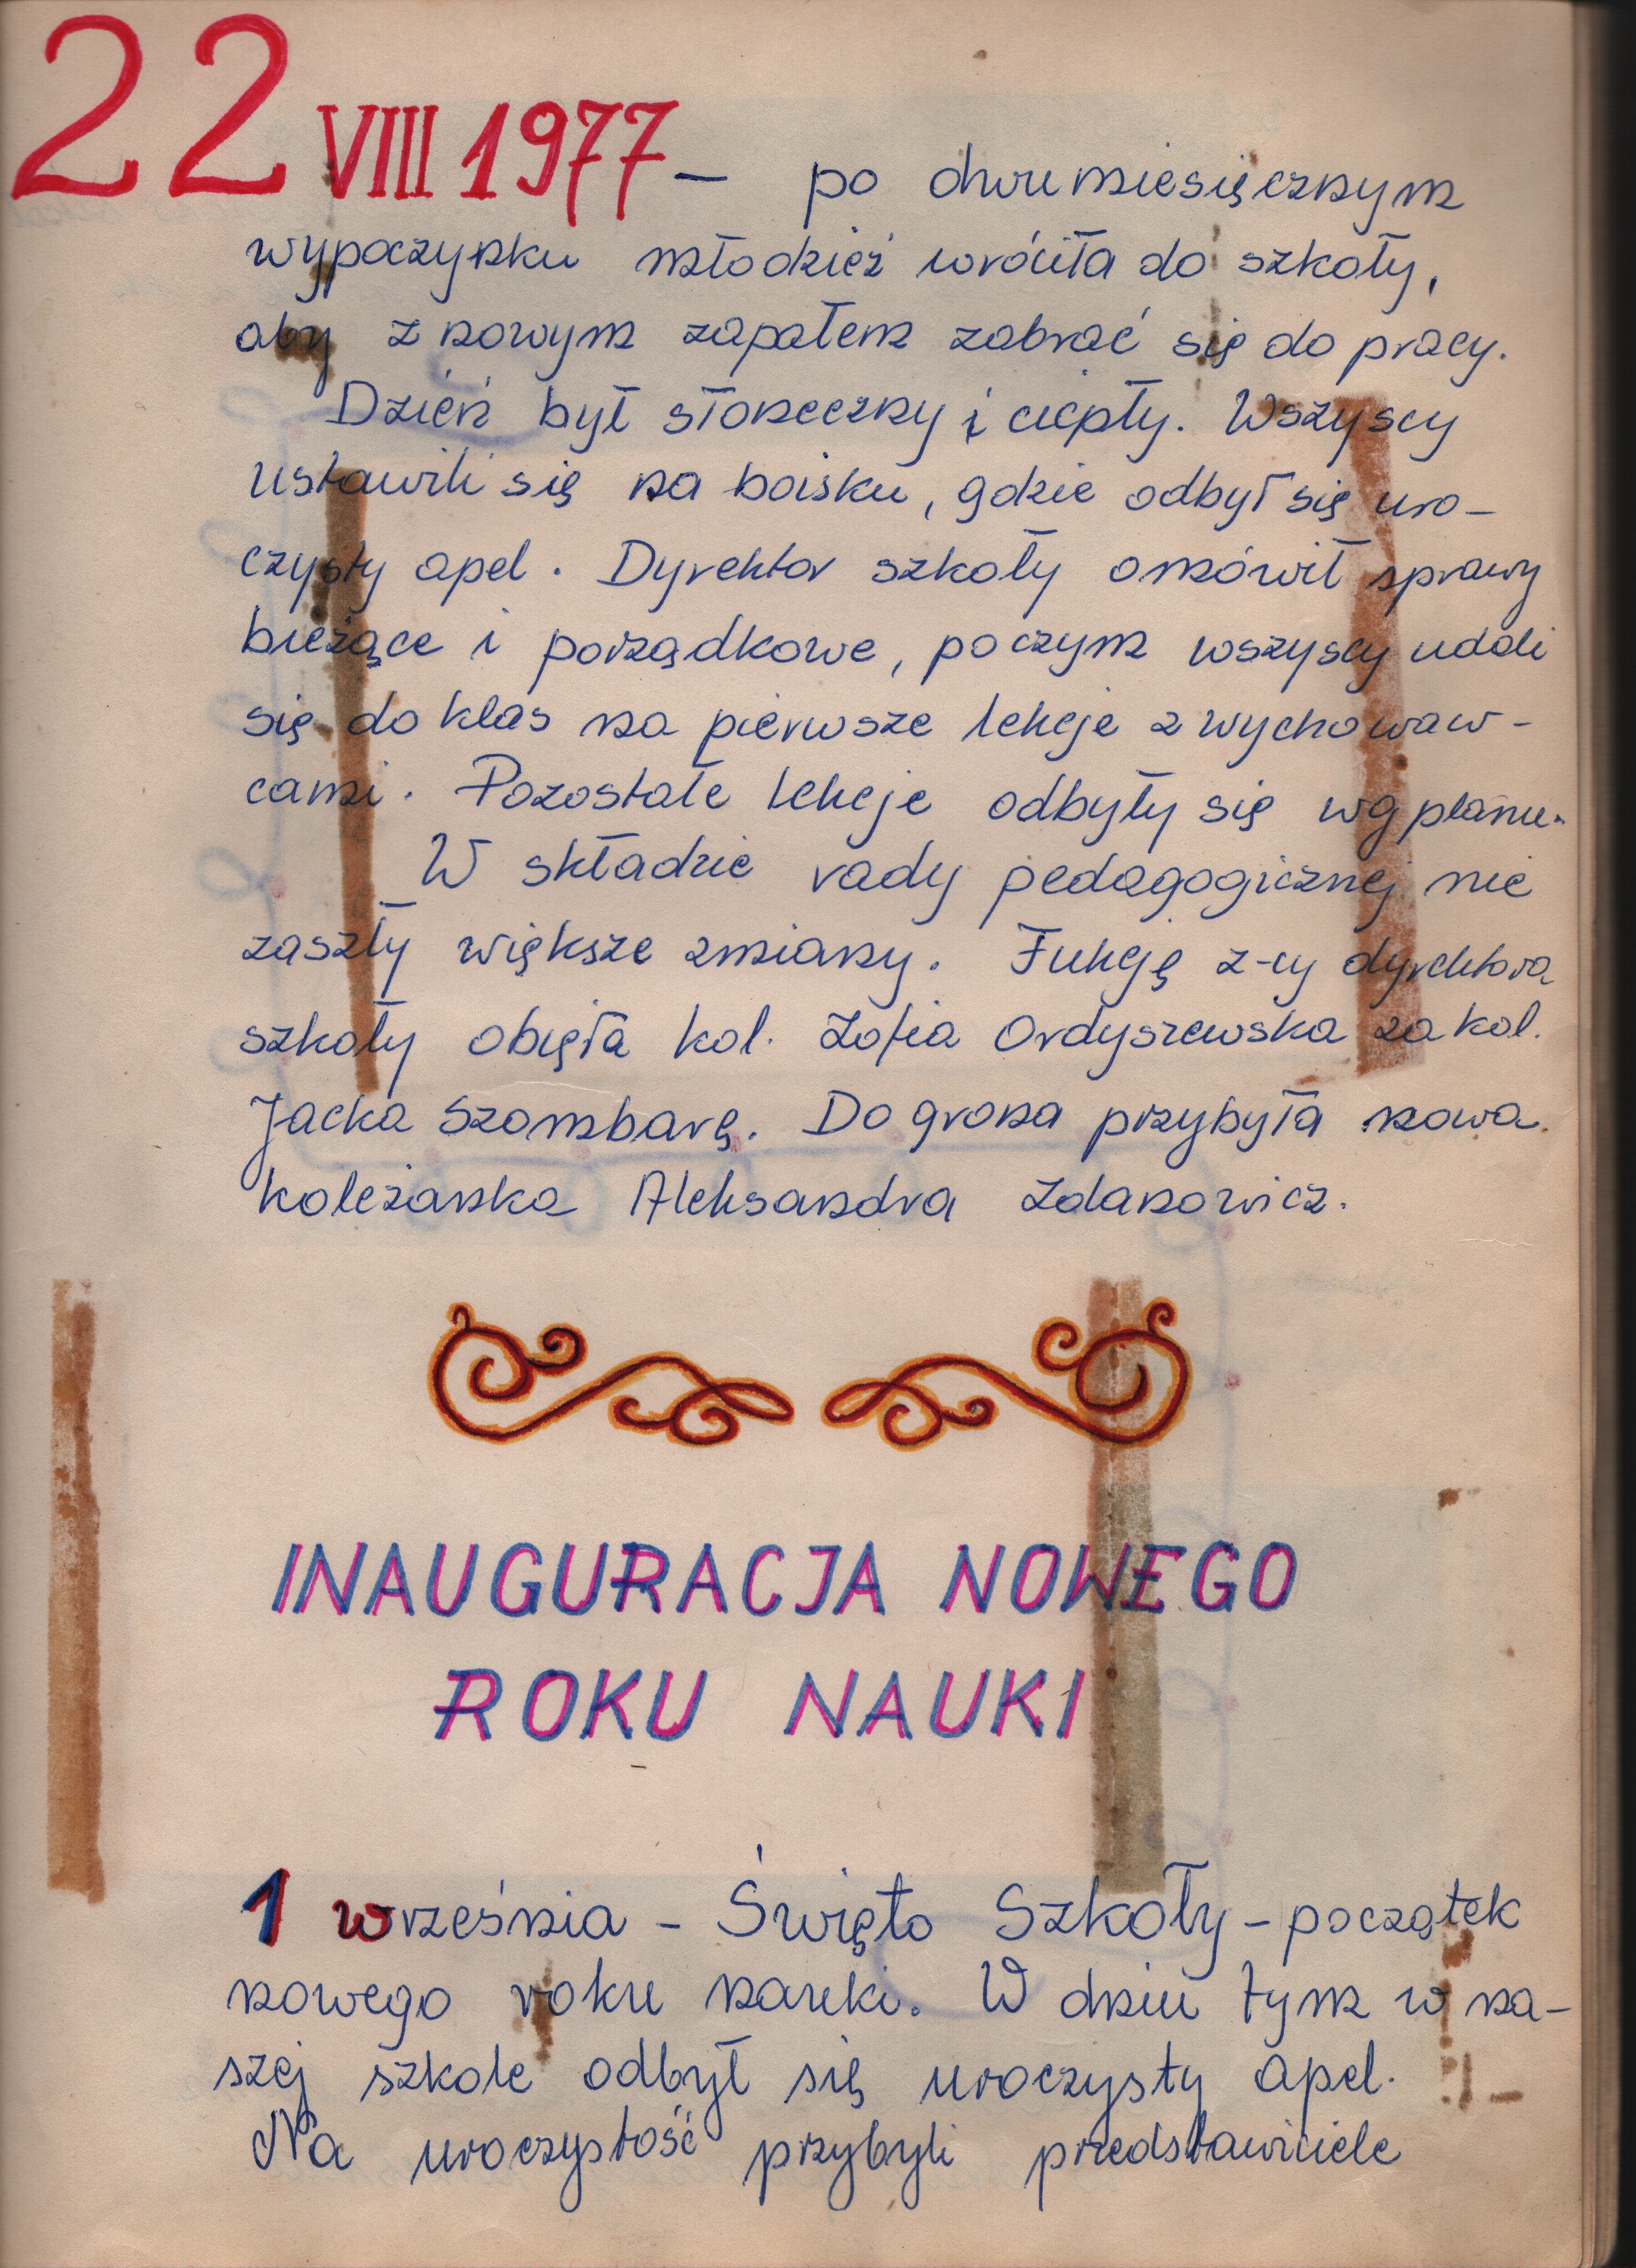 22 VIII 1977 - po dwumiesięcznym
wypoczynku młodzież wróciła do szkoły,
aby z nowym zapałem zabrać się do pracy.
Dzień był słoneczny i ciepły. Wszyscy
ustawili się na boisku, gdzie odbył się uro-
czysty apel. Dyrektor szkoły omówił sprawy
bieżące i porządkowe, poczym wszyscy udali
się do klas na pierwsze lekcje z wychowaw-
cami. Pozostałe lekcje odbyły się wg planu.
W składzie rady pedagogicznej nie
zaszły większe zmiany. Fukcję z-cy dyrektora
szkoły objęła kol. Zofia Ordyszewska za kol.
Jacka Szombarę. Do grona przybyła nowa
koleżanka Aleksandra Zdanowicz.
INAUGURACJA NOWEGO
ROKU NAUKI
1 września - Święto Szkoły - początek
nowego roku nauki. W dniu tym w na-
szej szkole odbył się uroczysty apel.
Na uroczystość przybyli przedstawiciele